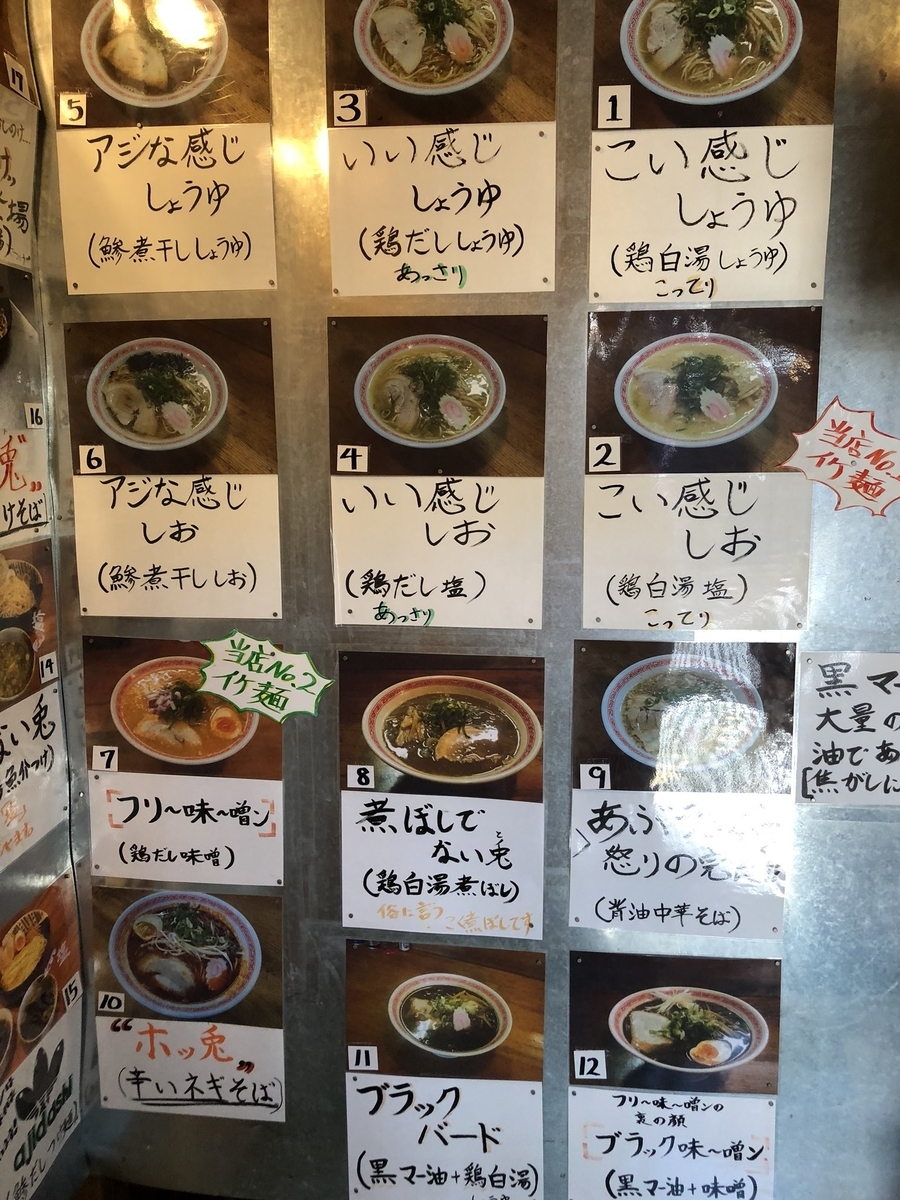 5
アジな感じ
しょうゆ
(鯵煮干ししょうゆ)
3
いい感じ
しょうゆ
(鶏だししょうゆ)
あっさり
1
こい感じ
しょうゆ
(鶏白湯しょうゆ)
こってり
6
アジな感じ
しお
(鯵煮干ししお)
4
いい感じ
しお
(鶏だし塩)
あっさり
2
こい感じ
しお
(鶏白湯塩)
こってり
当店No.
イケ麺
7
当店No.2
イケ麺
フリ〜味〜噌ン
(鶏だし味噌)
8
煮ぼしで
ない兎
と
(鶏白湯煮ぼし)
俗に言う
9
あふ
怒りの
(背油中華そば)
黒マー
大量の
油であ
[焦がしに
10
"ホッ兎"
(辛いネギそば)
11
ブラック
バード
(黒マー油+鶏白湯)
12
フリ〜味〜噌ンの
裏の顔
ブラック味〜噌ン
(黒マー油+味噌)
17
場
16
兎"
けそば
14
ない兎
魚介つけ)
15
ajidashi